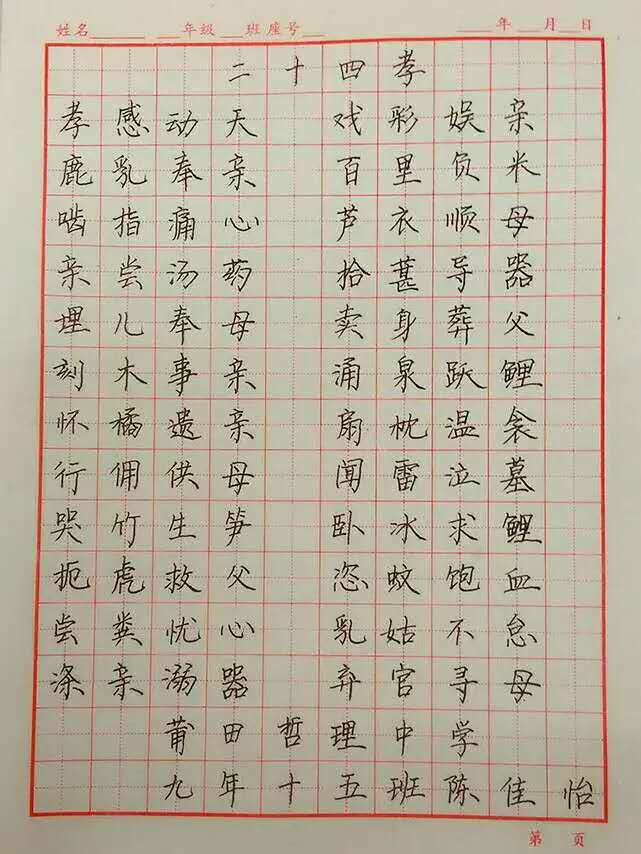 姓名 年级 班座号 年 月 日
二十四孝
孝感动天 戏彩娱亲
鹿乳奉亲 百里负米
啮指痛心 芦衣顺母
亲尝汤药 拾葚导器
埋儿奉母 卖身葬父
刻木事亲 涌泉跃鲤
怀橘遗亲 扇枕温衾
行佣供母 闻雷泣墓
哭竹生笋 卧冰求鲤
扼虎救父 恣蚊饱血
尝粪忧心 乳姑不怠
涤亲溺器 弃官寻母
莆田哲理中学
九年十五班陈佳怡
第 页